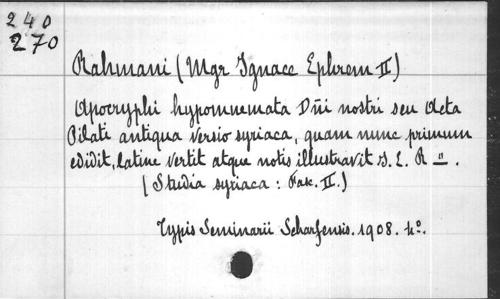 240
270
Rahmani (Mgr Ignace Ephrem II)
Apocryphi hypomnemata Dñi nostri seu Acta
Pilati antiqua versio syriaca, quam nunc primum
edidit, latine vertit atque notis illustravit I. E. R _"_ .
(Studia syriaca : Fasc. II.)
Typis Seminarii Scharfensis. 1908. 4º.